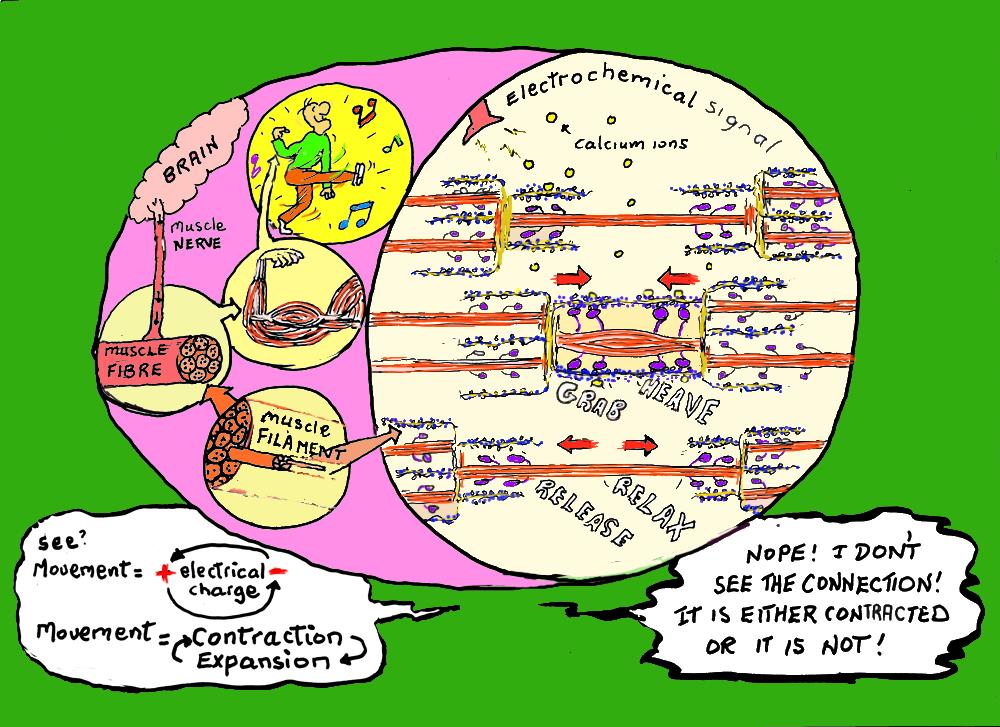 Electrochemical signal
Calcium ions
BRAIN
muscle
NERVE
muscle
FIBRE
muscle
FILAMENT
GRAB HEAVE
RELEASE RELAX
see?
Movement = + electrical –
charge
Movement = Contraction
Expansion
NOPE! I DON'T
SEE THE CONNECTION!
IT IS EITHER CONTRACTED
OR IT IS NOT!